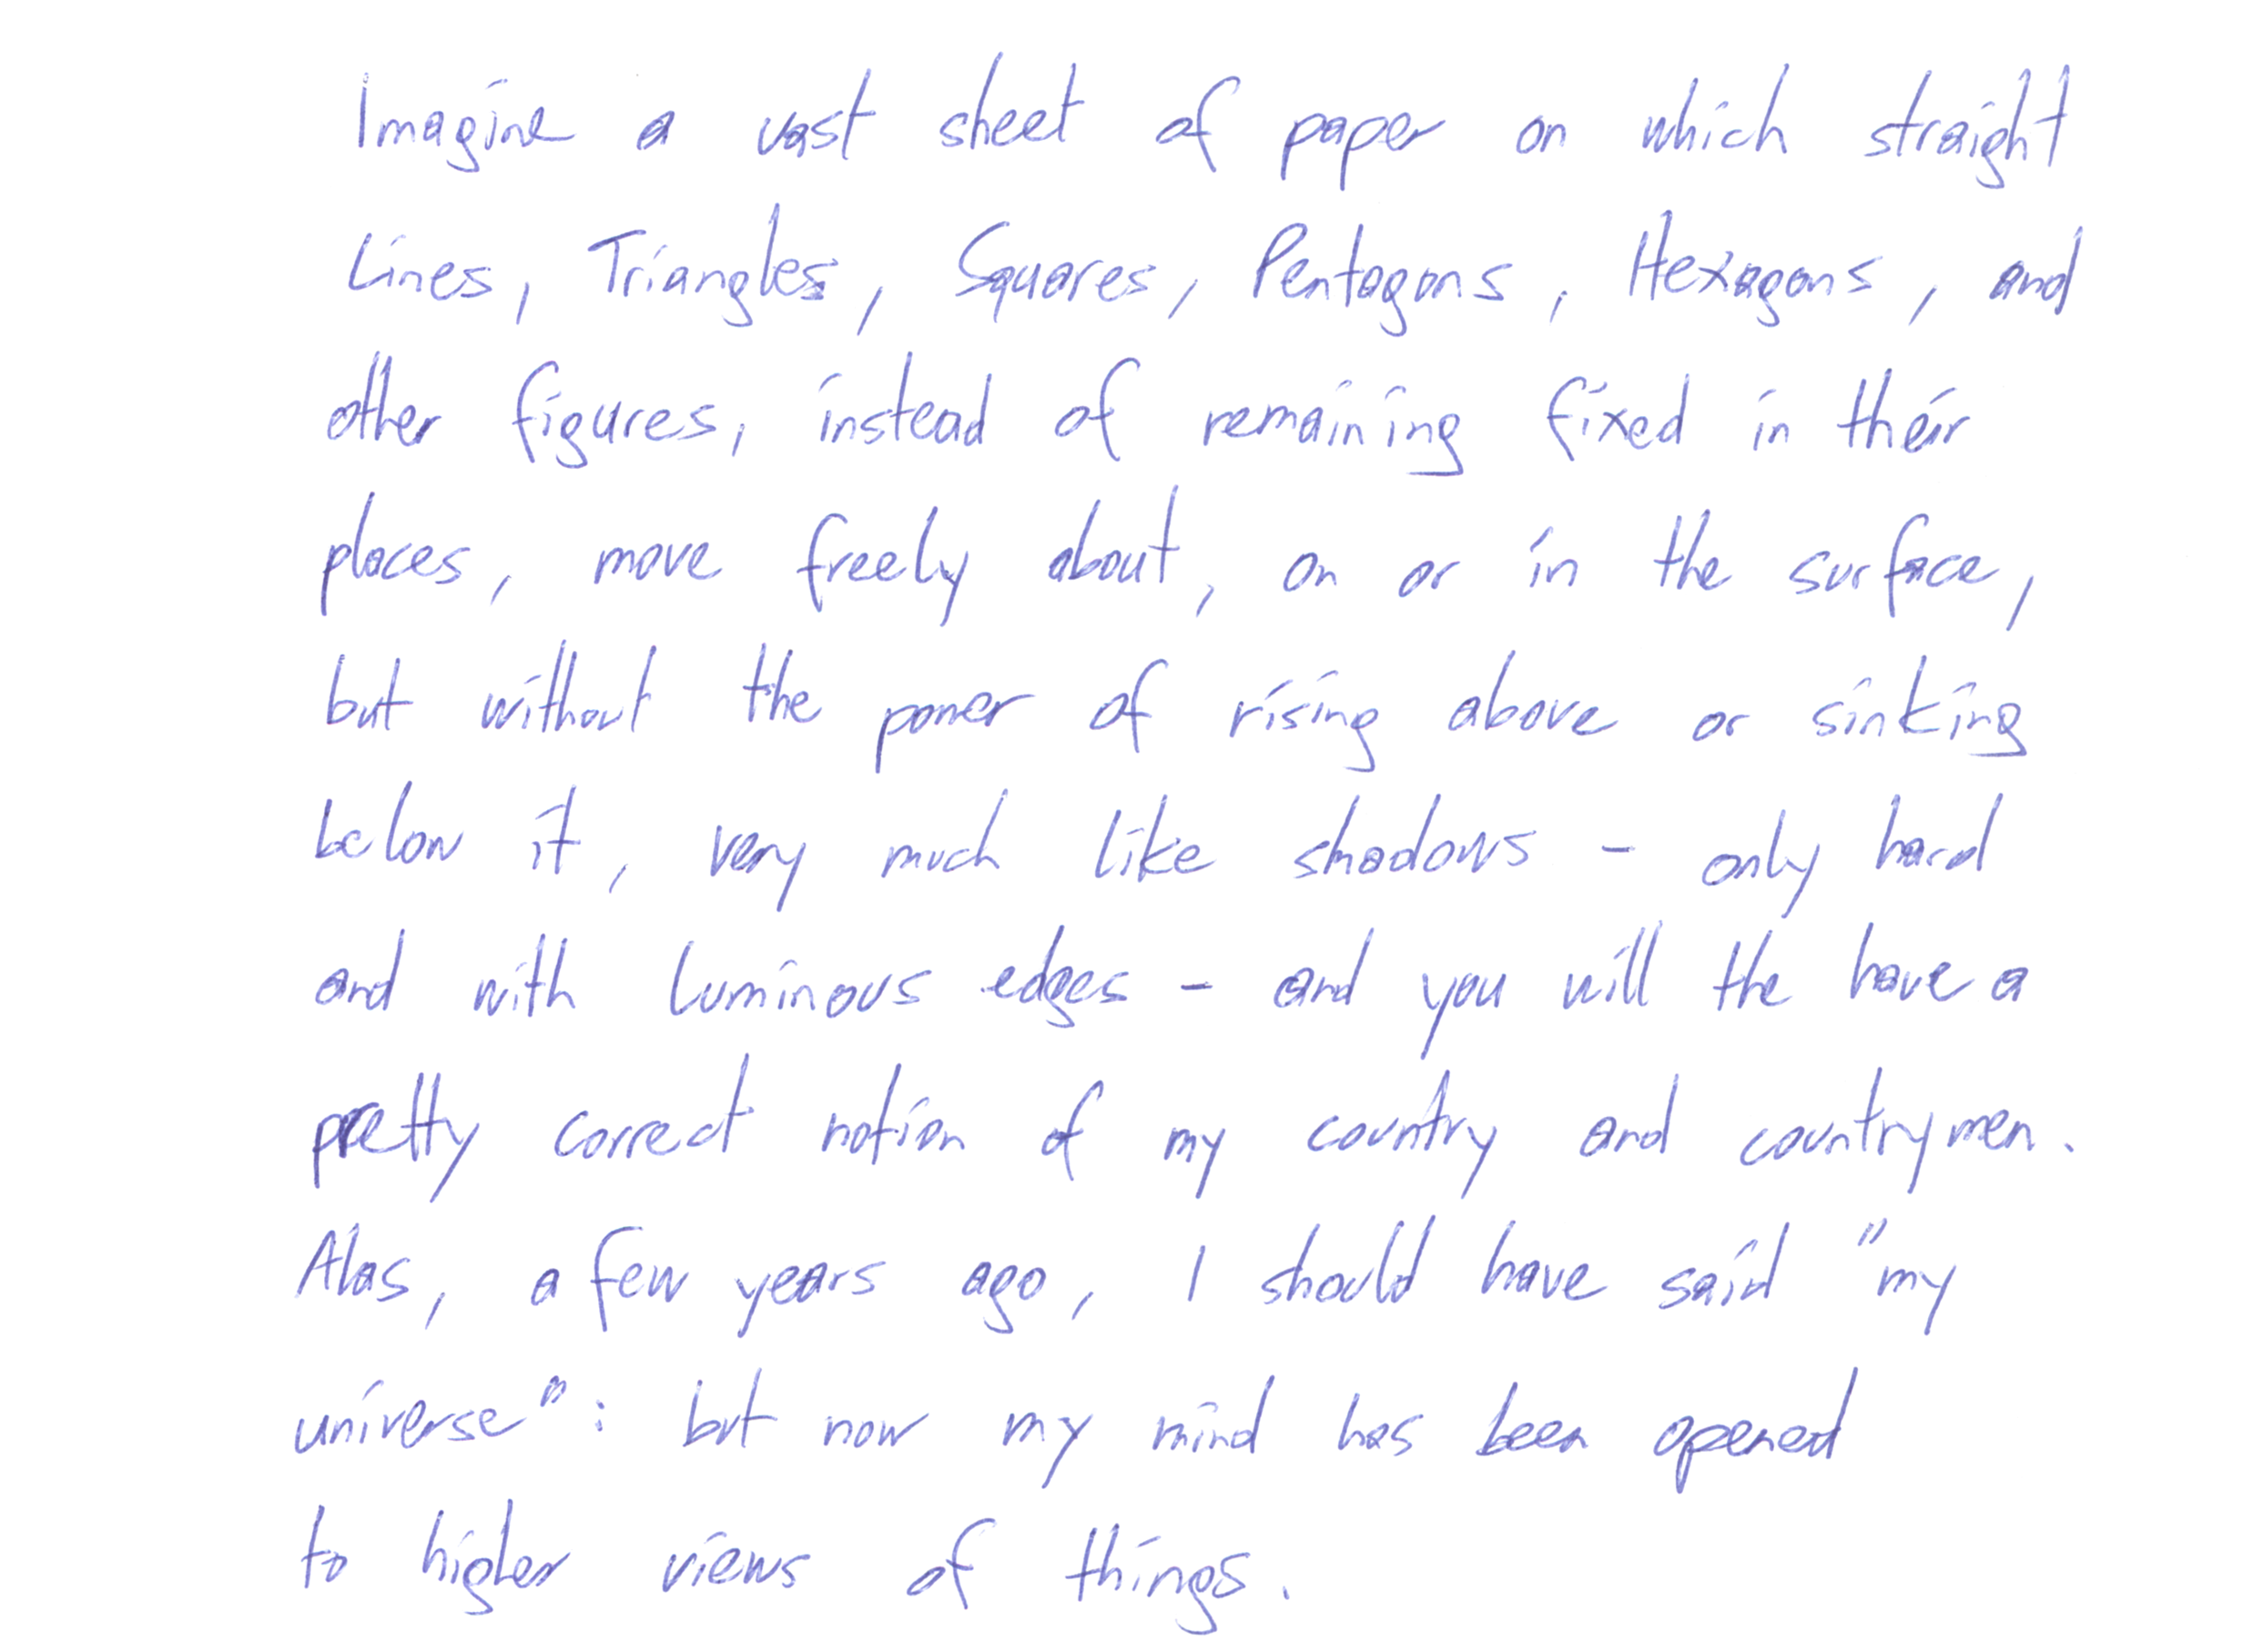 Imagine a vast sheet of paper on which straight
Lines, Triangles, Squares, Pentagons, Hexagons, and
other figures, instead of remaining fixed in their
places, move freely about, on or in the surface,
but without the power of rising above or sinking
below it, very much like shadows - only hard
and with luminous edges - and you will the have a
pretty correct notion of my country and countrymen.
Alas, a few years ago, I should have said "my
universe": but now my mind has been opened
to higher views of things.